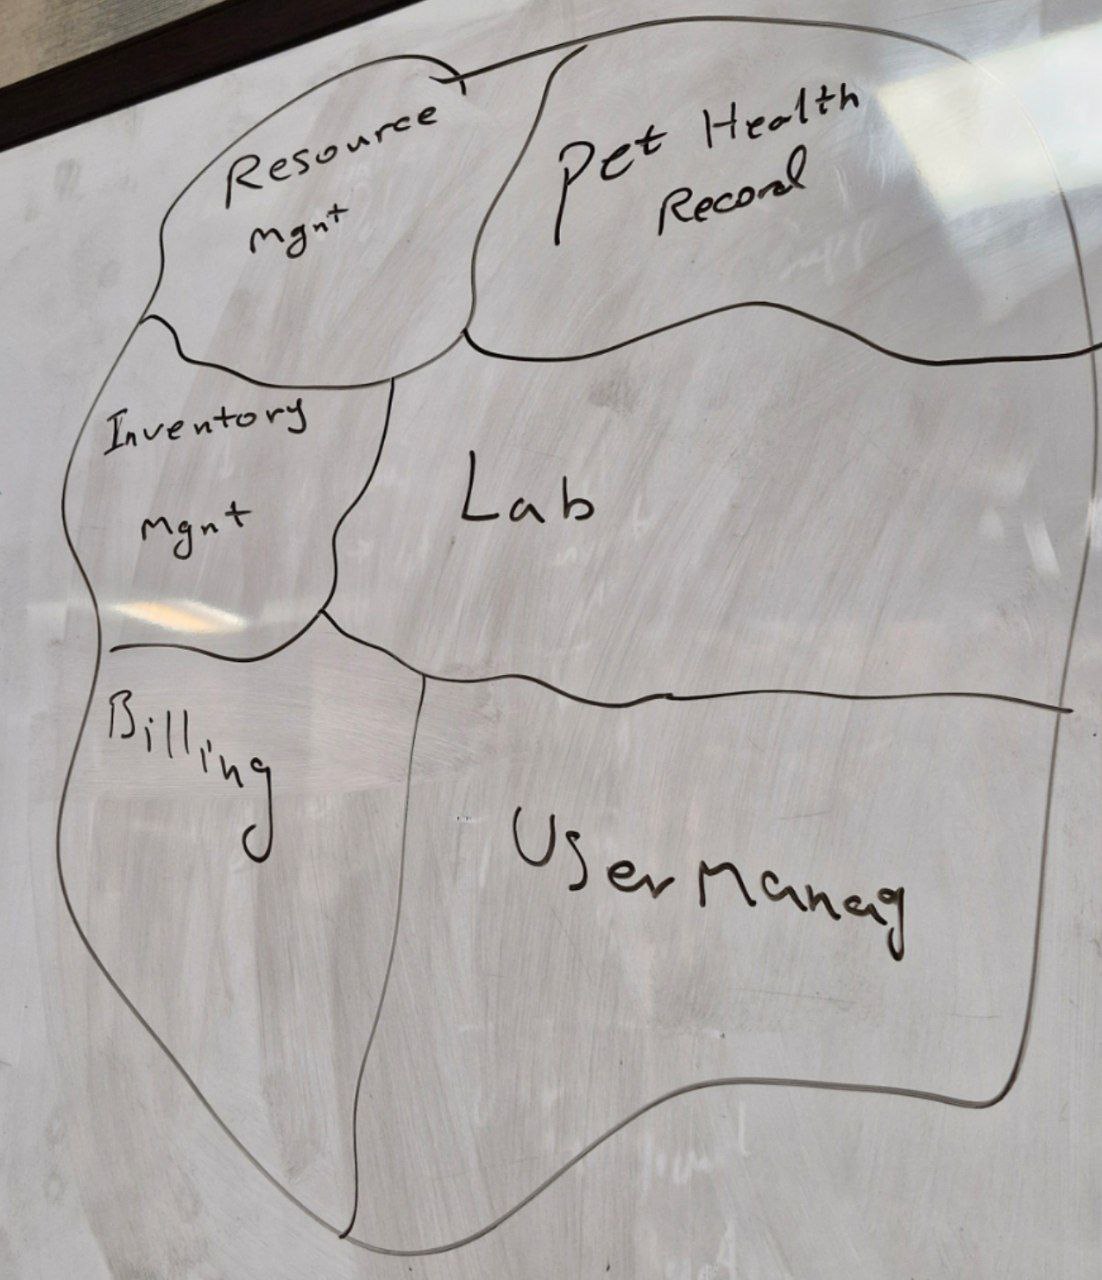 Resource
Mgnt
Pet Health
Record
Inventory
Mgnt
Lab
Billing
User Manag